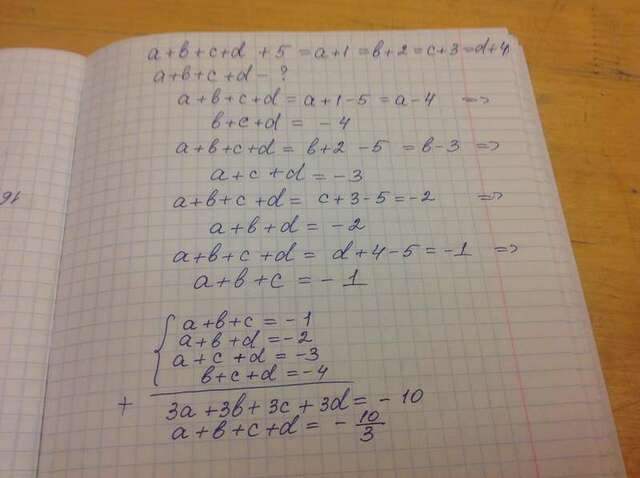 a+b+c+d +5 =a+1=b+2=c+3=d+4
a+b+c+d - ?
a+b+c+d = a+1-5 = a-4 =>
b+c+d = -4
a+b+c+d = b+2-5 = b-3 =>
a+c+d = -3
a+b+c+d = c+3-5 = -2 =>
a+b+d = -2
a+b+c+d = d+4-5 = -1 =>
a+b+c = -1
a+b+c = -1
a+b+d = -2
a+c+d = -3
b+c+d = -4
+
3a+3b+3c+3d = -10
a+b+c+d = -10/3